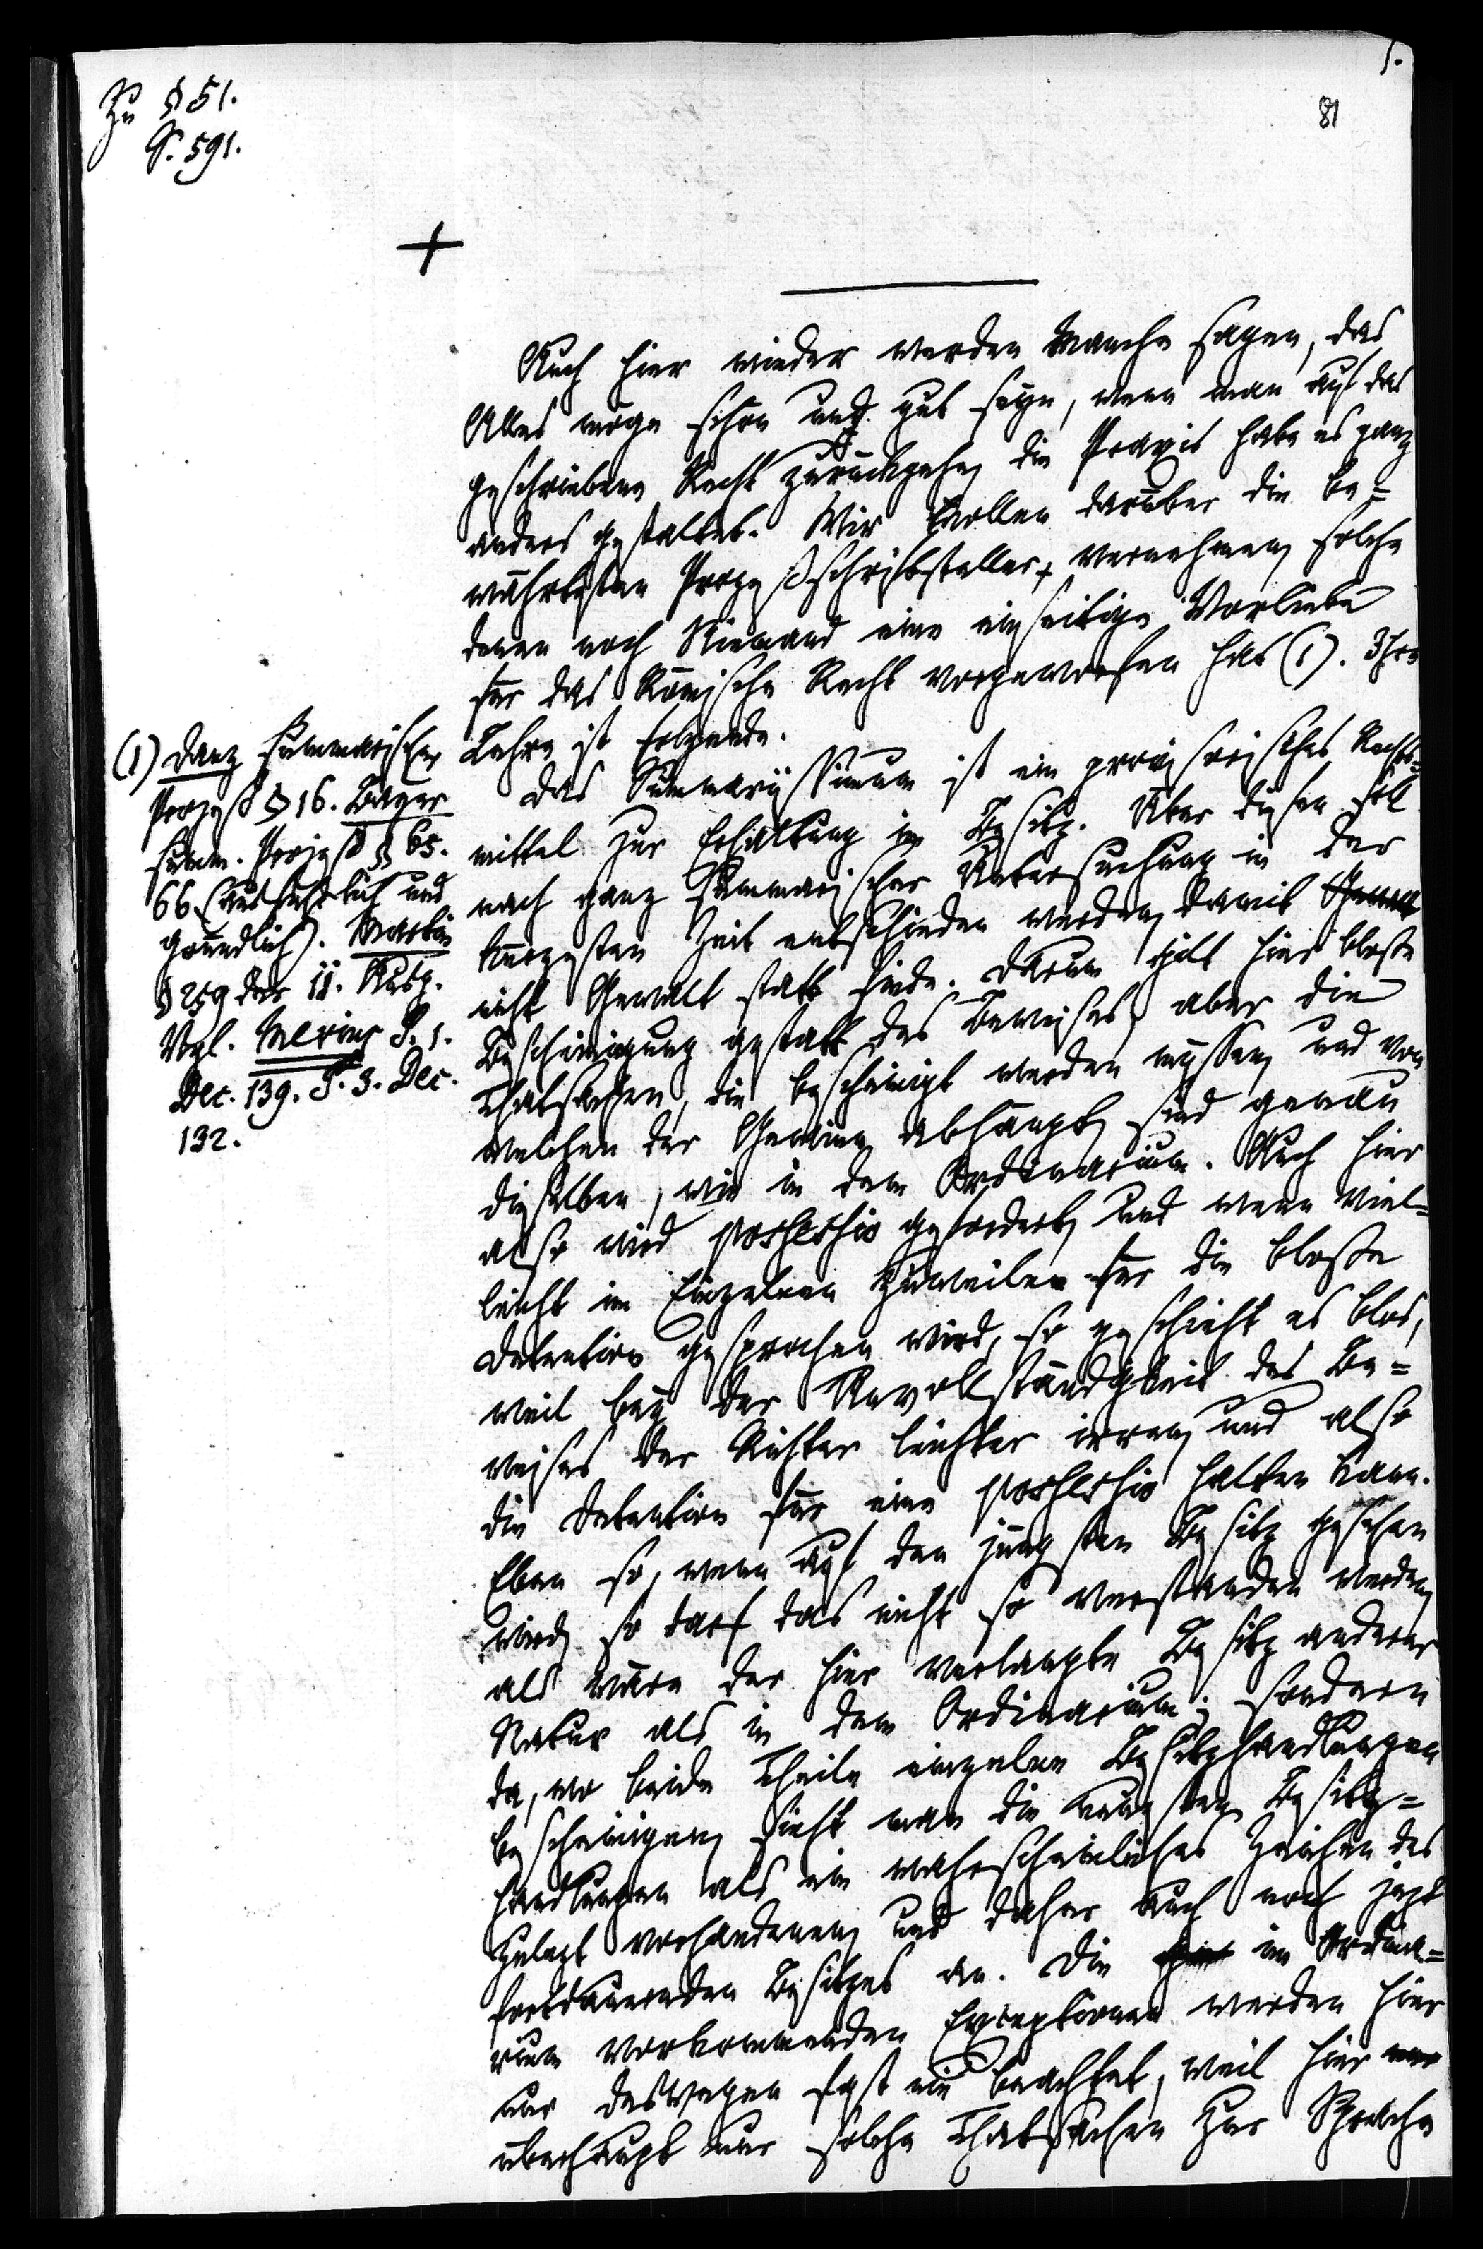 1.
Zu § 51.
S. 591.
81
+
Auch hier wieder werden Manche sagen, das
Alles möge schön und gut seyn, wenn man auf das
geschriebene Recht zurückgehe, die Praxis habe es ganz
anders gestaltet. Wir wollen darüber die be=
währtesten Prozeßschriftsteller vernehmen, solche
denen noch Niemand eine einseitige Vorliebe
für das Römische Recht vorgeworfen hat (1). Ihre
Lehre ist folgende.
Das Summariissimum ist ein provisorisches Rechts=
mittel zur Erhaltung im Besitz. Über diesen soll
nach ganz summarischer Untersuchung in der
kürzesten Zeit entschieden werden, damit
nicht Gewalt statt finde. Darum gilt hier bloße
Bescheinigung anstatt des Beweises, aber die
Thatsachen, die bescheinigt werden müssen, und von
welchen der Gewinn abhängt, sind genau
dieselben, wie in dem Ordinarium. Auch hier
also wird possessio gefordert, und wenn viel=
leicht im Einzelnen zuweilen für die bloße
Detention gesprochen wird, so geschieht es blos,
weil bey der Unvollständigkeit des Be=
weises der Richter leichter irren, und also
die Detention für eine possessio halten kann.
Eben so, wenn auf den jüngsten Besitz gesehen
wird, so darf das nicht so verstanden werden,
als wäre der hier verlangte Besitz anderer
Natur als in dem Ordinarium; sondern
da, wo beide Theile einzelne Besitzhandlungen
bescheinigen, sieht man die neuesten Besitz=
handlungen als ein wahrscheinliches Zeichen des
zuletzt vorhandenen, und daher auch noch jezt
fortdauernden Besitzes an. Die im Ordina=
rium vorkommenden Exceptionen werden hier
nur deswegen fast nie beachtet, weil hier
überhaupt nur solche Thatsachen zur Sprache
(1) Danz summarischer
Prozeß § 16. Bayer
summ. Prozeß § 65.
66 (ausführlich und
gründlich). Martin
§ 259 der 11. Ausg.
Vgl. Mevius P. 1.
Dec. 139. P. 3. Dec.
132.